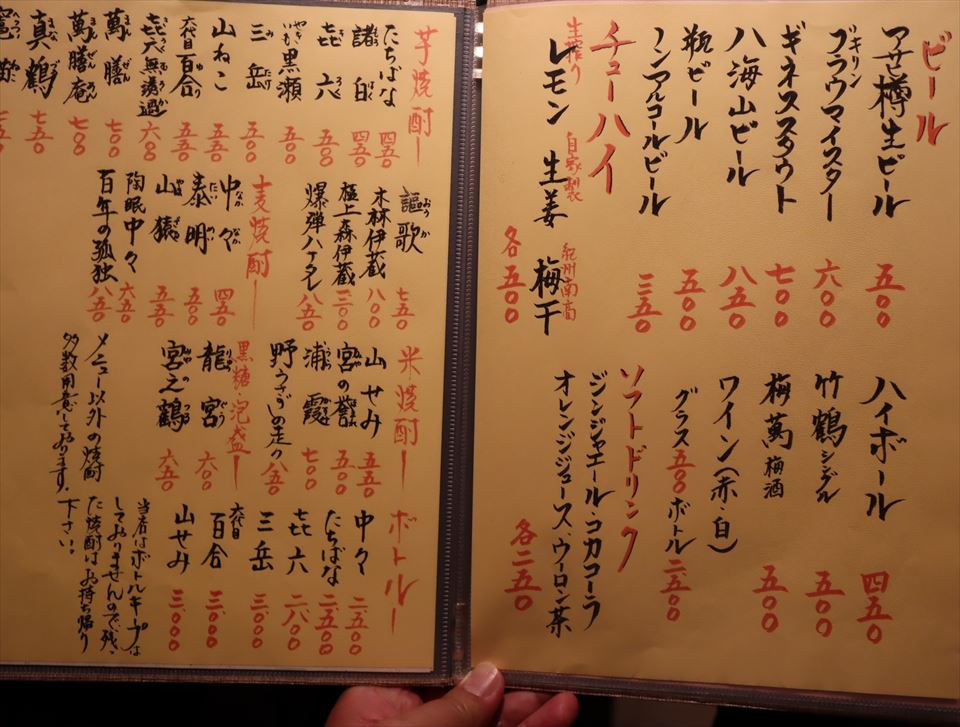 ビール
アサヒ樽生ビール 五〇〇
キリン
ブラウマイスター 六〇〇
ギネススタウト 七〇〇
八海山ビール 八五〇
瓶ビール 五〇〇
ノンアルコールビール 三五〇
チューハイ
生搾り 自家製 紀州南高
レモン 生姜 梅干
各五〇〇
ハイボール 四五〇
竹鶴シングル 五五〇
梅萬 梅酒 五〇〇
ワイン(赤・白)
グラス五〇〇 ボトル二五〇〇
ソフトドリンク
ジンジャエール・コカコーラ
オレンジジュース・ウーロン茶
各二五〇
芋焼酎ー
たちばな 四五〇
諸白 四五〇
㐂六 五〇〇
黒瀬 五〇〇
三岳 五〇〇
山ねこ 五五〇
六代目百合 五五〇
㐂六無濾過 六〇〇
萬膳 七〇〇
萬膳庵 七〇〇
真鶴 七五〇
謳歌 七五〇
木林伊蔵 八〇〇
極上森伊蔵
爆弾ハナタレ 八五〇
麦焼酎ー
中々 四五〇
泰明 五〇〇
山猿 五五〇
陶眠中々 六五〇
百年の孤独 八五〇
米焼酎ー
山せみ 五五〇
宮の誉 五〇〇
浦霞 七〇〇
野うさぎの走り 八五〇
黒糖・泡盛ー
龍宮 六〇〇
宮之鶴 六五〇
メニュー以外の焼酎
多数用意しております。
ボトルー
中々 二五〇〇
たちばな 二五〇〇
㐂六 二八〇〇
三岳 三〇〇〇
六代目
百合 三〇〇〇
山せみ 三〇〇〇
当店はボトルキープは
しておりませんので、残っ
た焼酎はお持ち帰り
下さい。